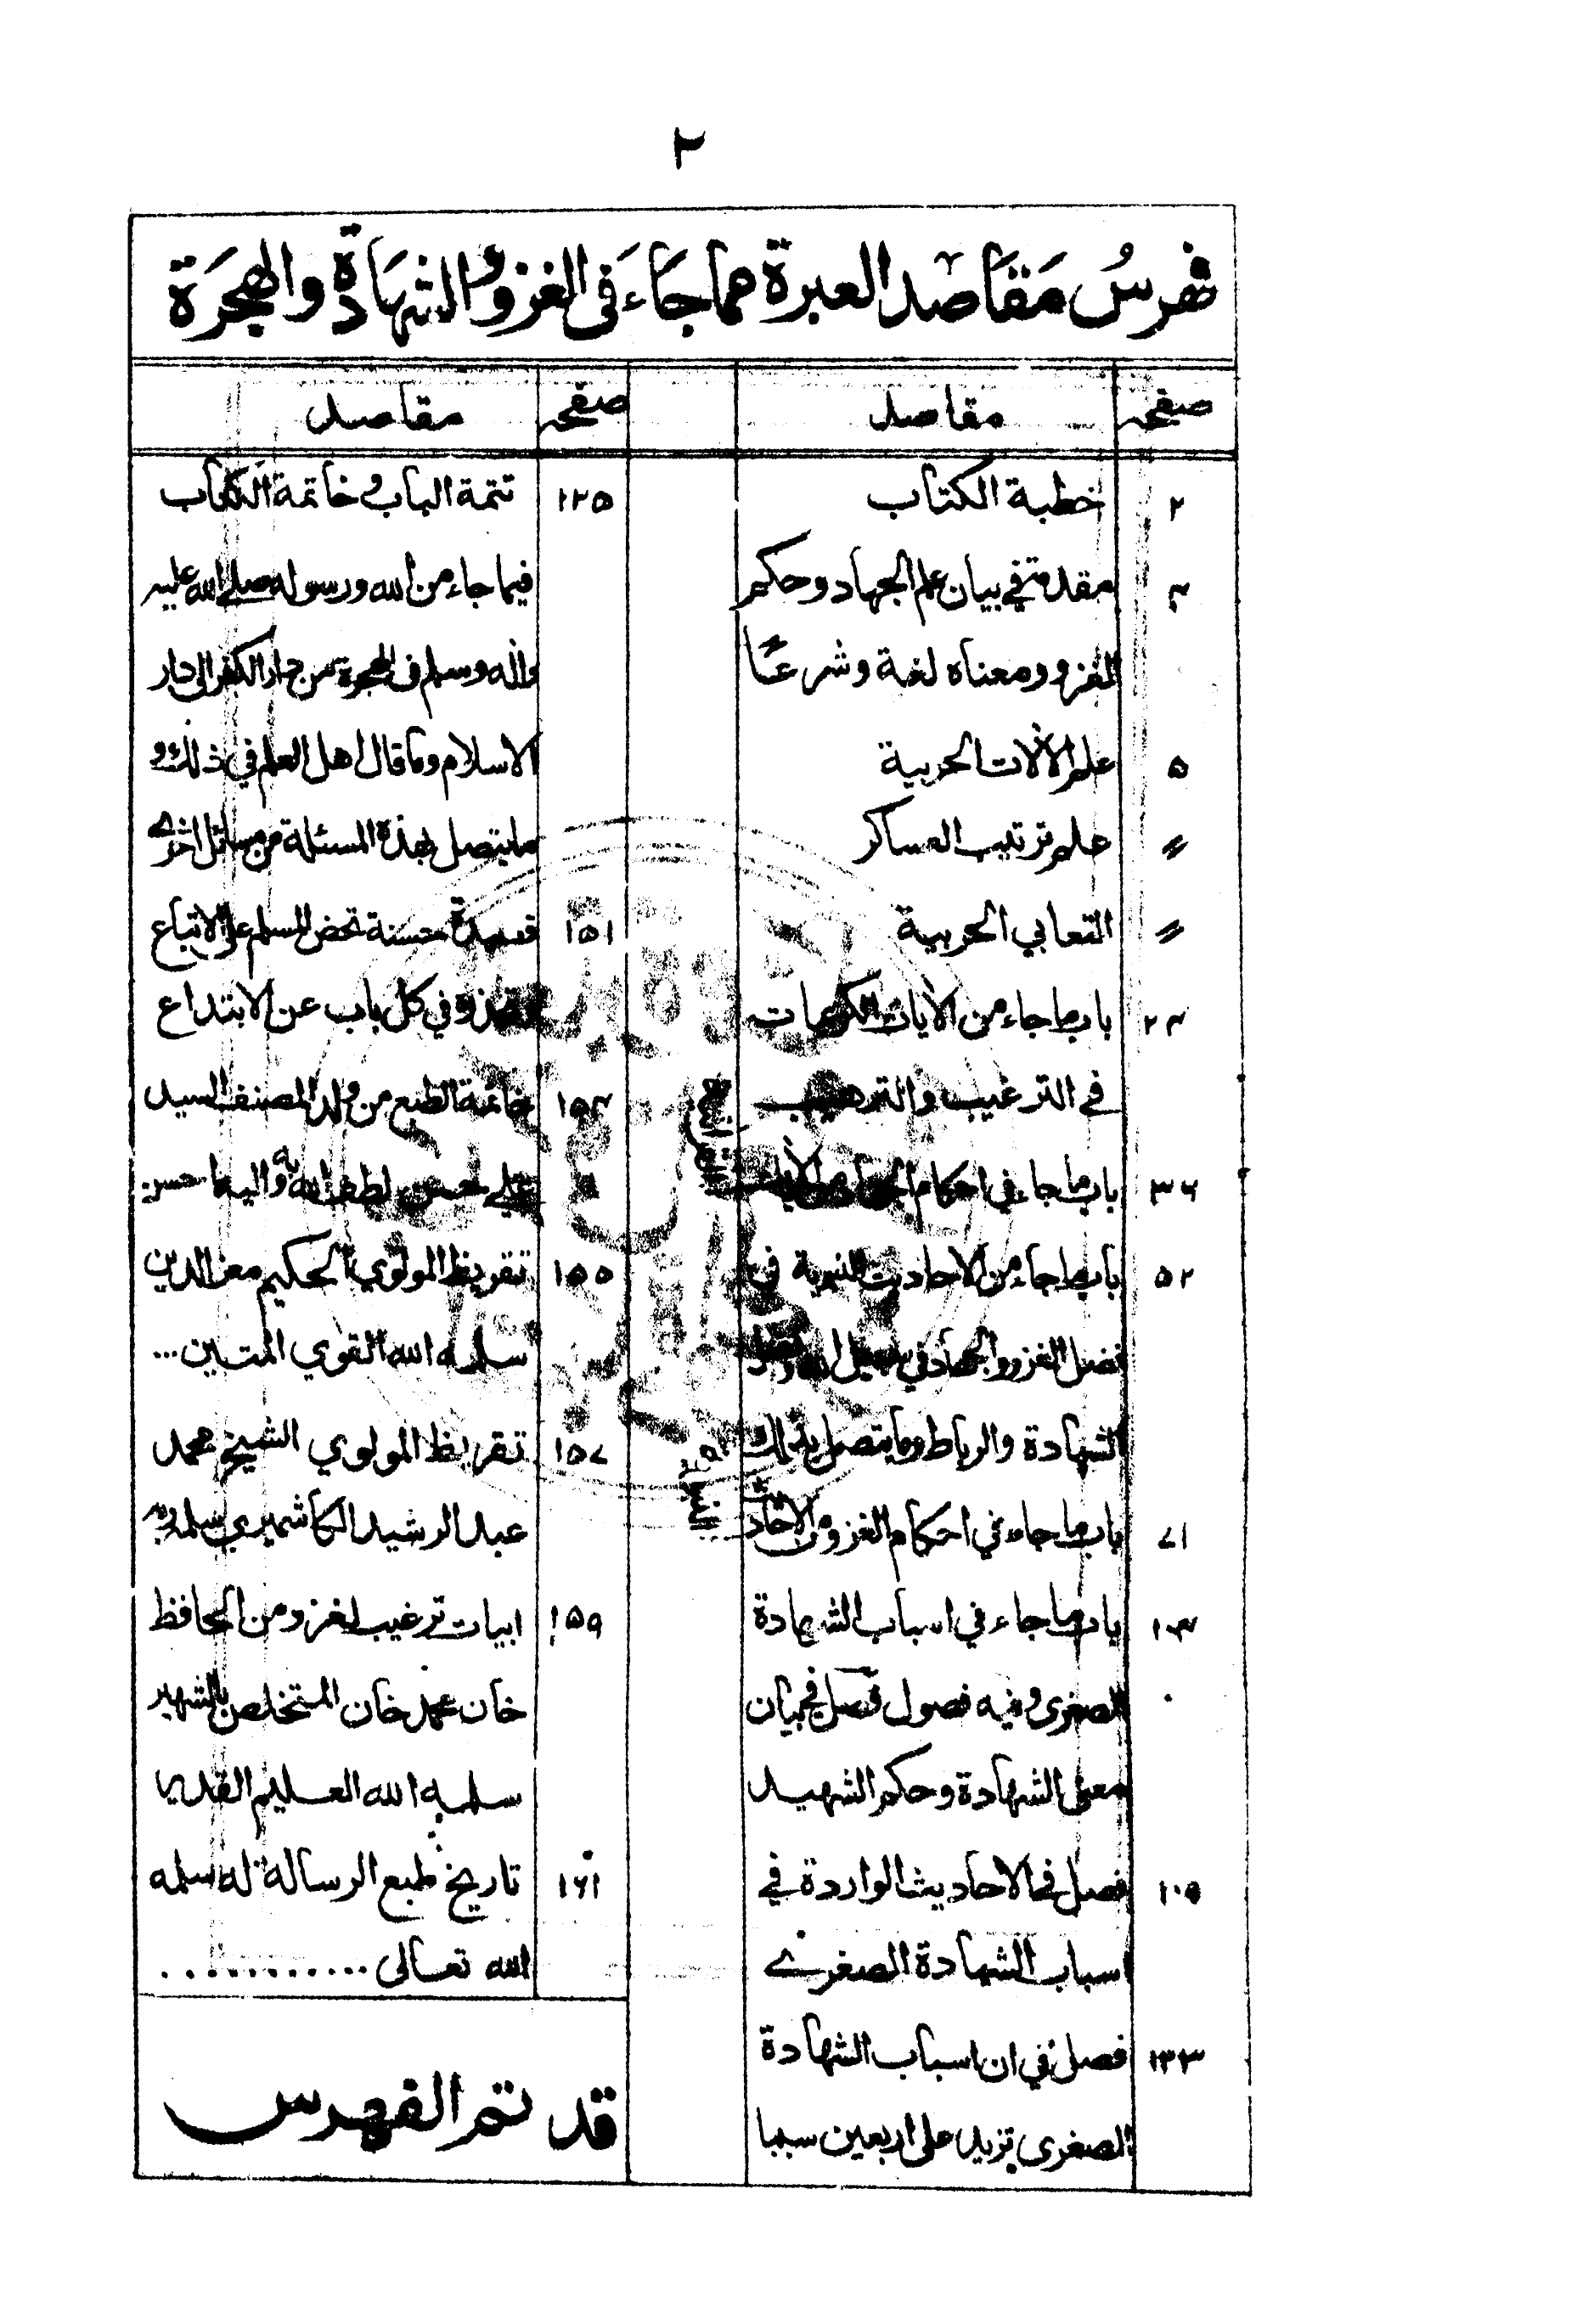 ٢
فهرس مقاصد العبرة مما جاء في الغزو والشهادة والهجرة
صفحه
مقاصد
٢
خطبة الكتاب
٣
مقدمة في بيان علم الجهاد وحكم
الغزو ومعناه لغة وشرعًا
٥
علم الآلات الحربية
〃
علم ترتيب العساكر
〃
التعابي الحربية
٢٣
باب ما جاء من الآيات الكريمات
في الترغيب والترهيب
٣٦
باب ما جاء في احكام الجهاد من الآيات
٥٢
باب ما جاء من الاحاديث النبوية في
فضل الغزو والجهاد في سبيل الله وفضل
الشهادة والرباط وما يتصل بذلك
٧١
باب ما جاء في احكام الغزو من الاحاديث
١٠٣
باب ما جاء في اسباب الشهادة
الصغرى وفيه فصول فصل في بيان
معنى الشهادة وحكم الشهيد
١٠٥
فصل في الاحاديث الواردة في
اسباب الشهادة الصغرى
١٣٣
فصل في ان اسباب الشهادة
الصغرى تزيد على اربعين سببا
صفحه
مقاصد
١٣٥
تتمة الباب في خاتمة الكتاب
فيما جاء من الله ورسوله صلى الله عليه
وآله وسلم في الهجرة من دار الكفر الى دار
الاسلام وما قال اهل العلم في ذلك و
ما يتصل بهذه المسئلة من مسائل اخرى
١٥١
قصيدة حسنة تحض المسلم على الاتباع
في كل باب عن الابتداع
١٥٣
خاتمة الطبع من ولد المصنف السيد
علي حسن لطف الله به واليهما حسن
١٥٥
تقريظ المولوي الحكيم معز الدين
سلمه الله القوي المتين ...
١٥٧
تقريظ المولوي الشيخ محمد
عبد الرشيد الكاشميري سلمه ربه
١٥٩
ابيات ترغيب لغزو من الحافظ
خان محمد خان المتخلص بالشهير
سلمه الله العليم القدير
١٦١
تاريخ طبع الرسالة له سلمه
الله تعالى ...........
قد تم الفهرس